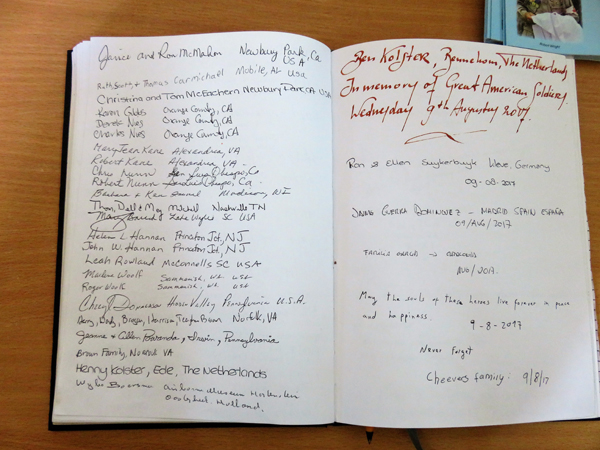 Janice and Ron McMahon Newbury Park, Ca
USA
Ruth, Scott, + Thomas Carmichael Mobile, AL USA
Christina and Tom McEachern Newbury Park, CA USA
Karen Gibbs Orange County, CA
Derek Nies Orange County, CA
Charles Nies Orange County, CA
Mary Teen Kane Alexandria, VA
Robert Kane Alexandria, VA
Chris Nunn San Luis Obispo, Ca
Robert Nunn San Luis Obispo, Ca
Barbara + Ken
Thom, Dell + Meg Mitchell Nashville TN
Lake Wylie SC USA
Helen L. Hannan Princeton Jct, NJ
John W. Hannan Princeton Jct, NJ
Leah Rowland McConnells SC USA
Marlene Woolf Sammamish, WA USA
Roger Woolf Sammamish, WA USA
Cheryl Donovan Valley Pennsylvania U.S.A.
Norfolk, VA
Jeanne + Allen Irwin, Pennsylvania
Brown Family, Norfolk VA
Henny Kolster, Ede, The Netherlands
Holland.
Kolster, Bennekom, The Netherlands
In memory of Great American Soldiers.
Wednesday 9th August 2017.
Ron & Ellen Suykerbuyk Weeze, Germany
09-08-2017
DOMINGUEZ - MADRID SPAIN ESPAÑA
09/AUG/2017
AUG/2017.
May the souls of these heroes live forever in peace
and happiness.
9-8-2017
Never Forget
Cheevers family: 9/8/17